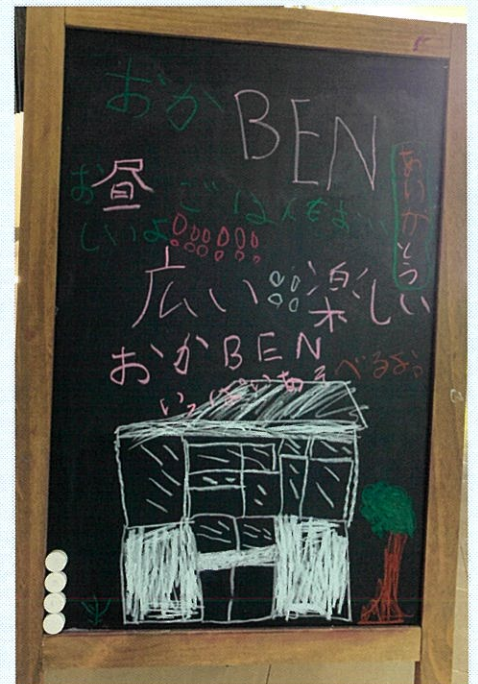 おかBEN
お昼ごはんをおい
しいよ!!!!!!
ありがとう
広い!!楽しい
おかBEN
いっぱいある